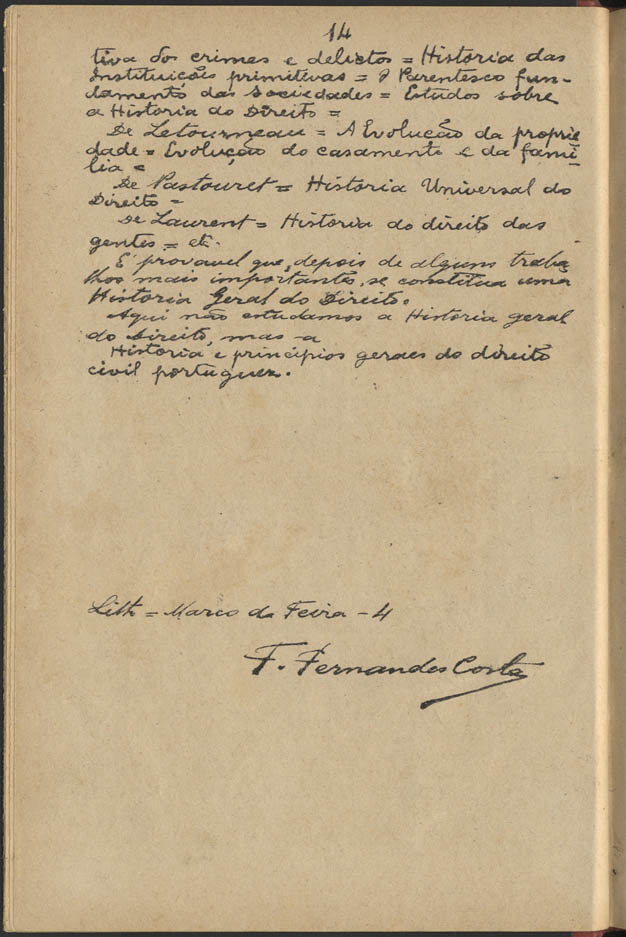 14
tiva dos crimes e delictos = Historia das
Instituições primitivas = O Parentesco fun-
damento das sociedades = Estudos sobre
a Historia do Direito =
De Letourneau = A Evolução da proprie
dade = Evolução do casamento e da fami
lia =
De Pastouret = Historia Universal do
Direito =
De Laurent = Historia do direito das
gentes = etc.
É provavel que, depois de alguns traba
lhos mais importantes, se constitua uma
Historia Geral do Direito.
Aqui não estudamos a Historia geral
do Direito, mas - a
Historia e principios geraes do direito
civil portuguez.
Lith = Marco da Feira - 4
F. Fernandes Costa